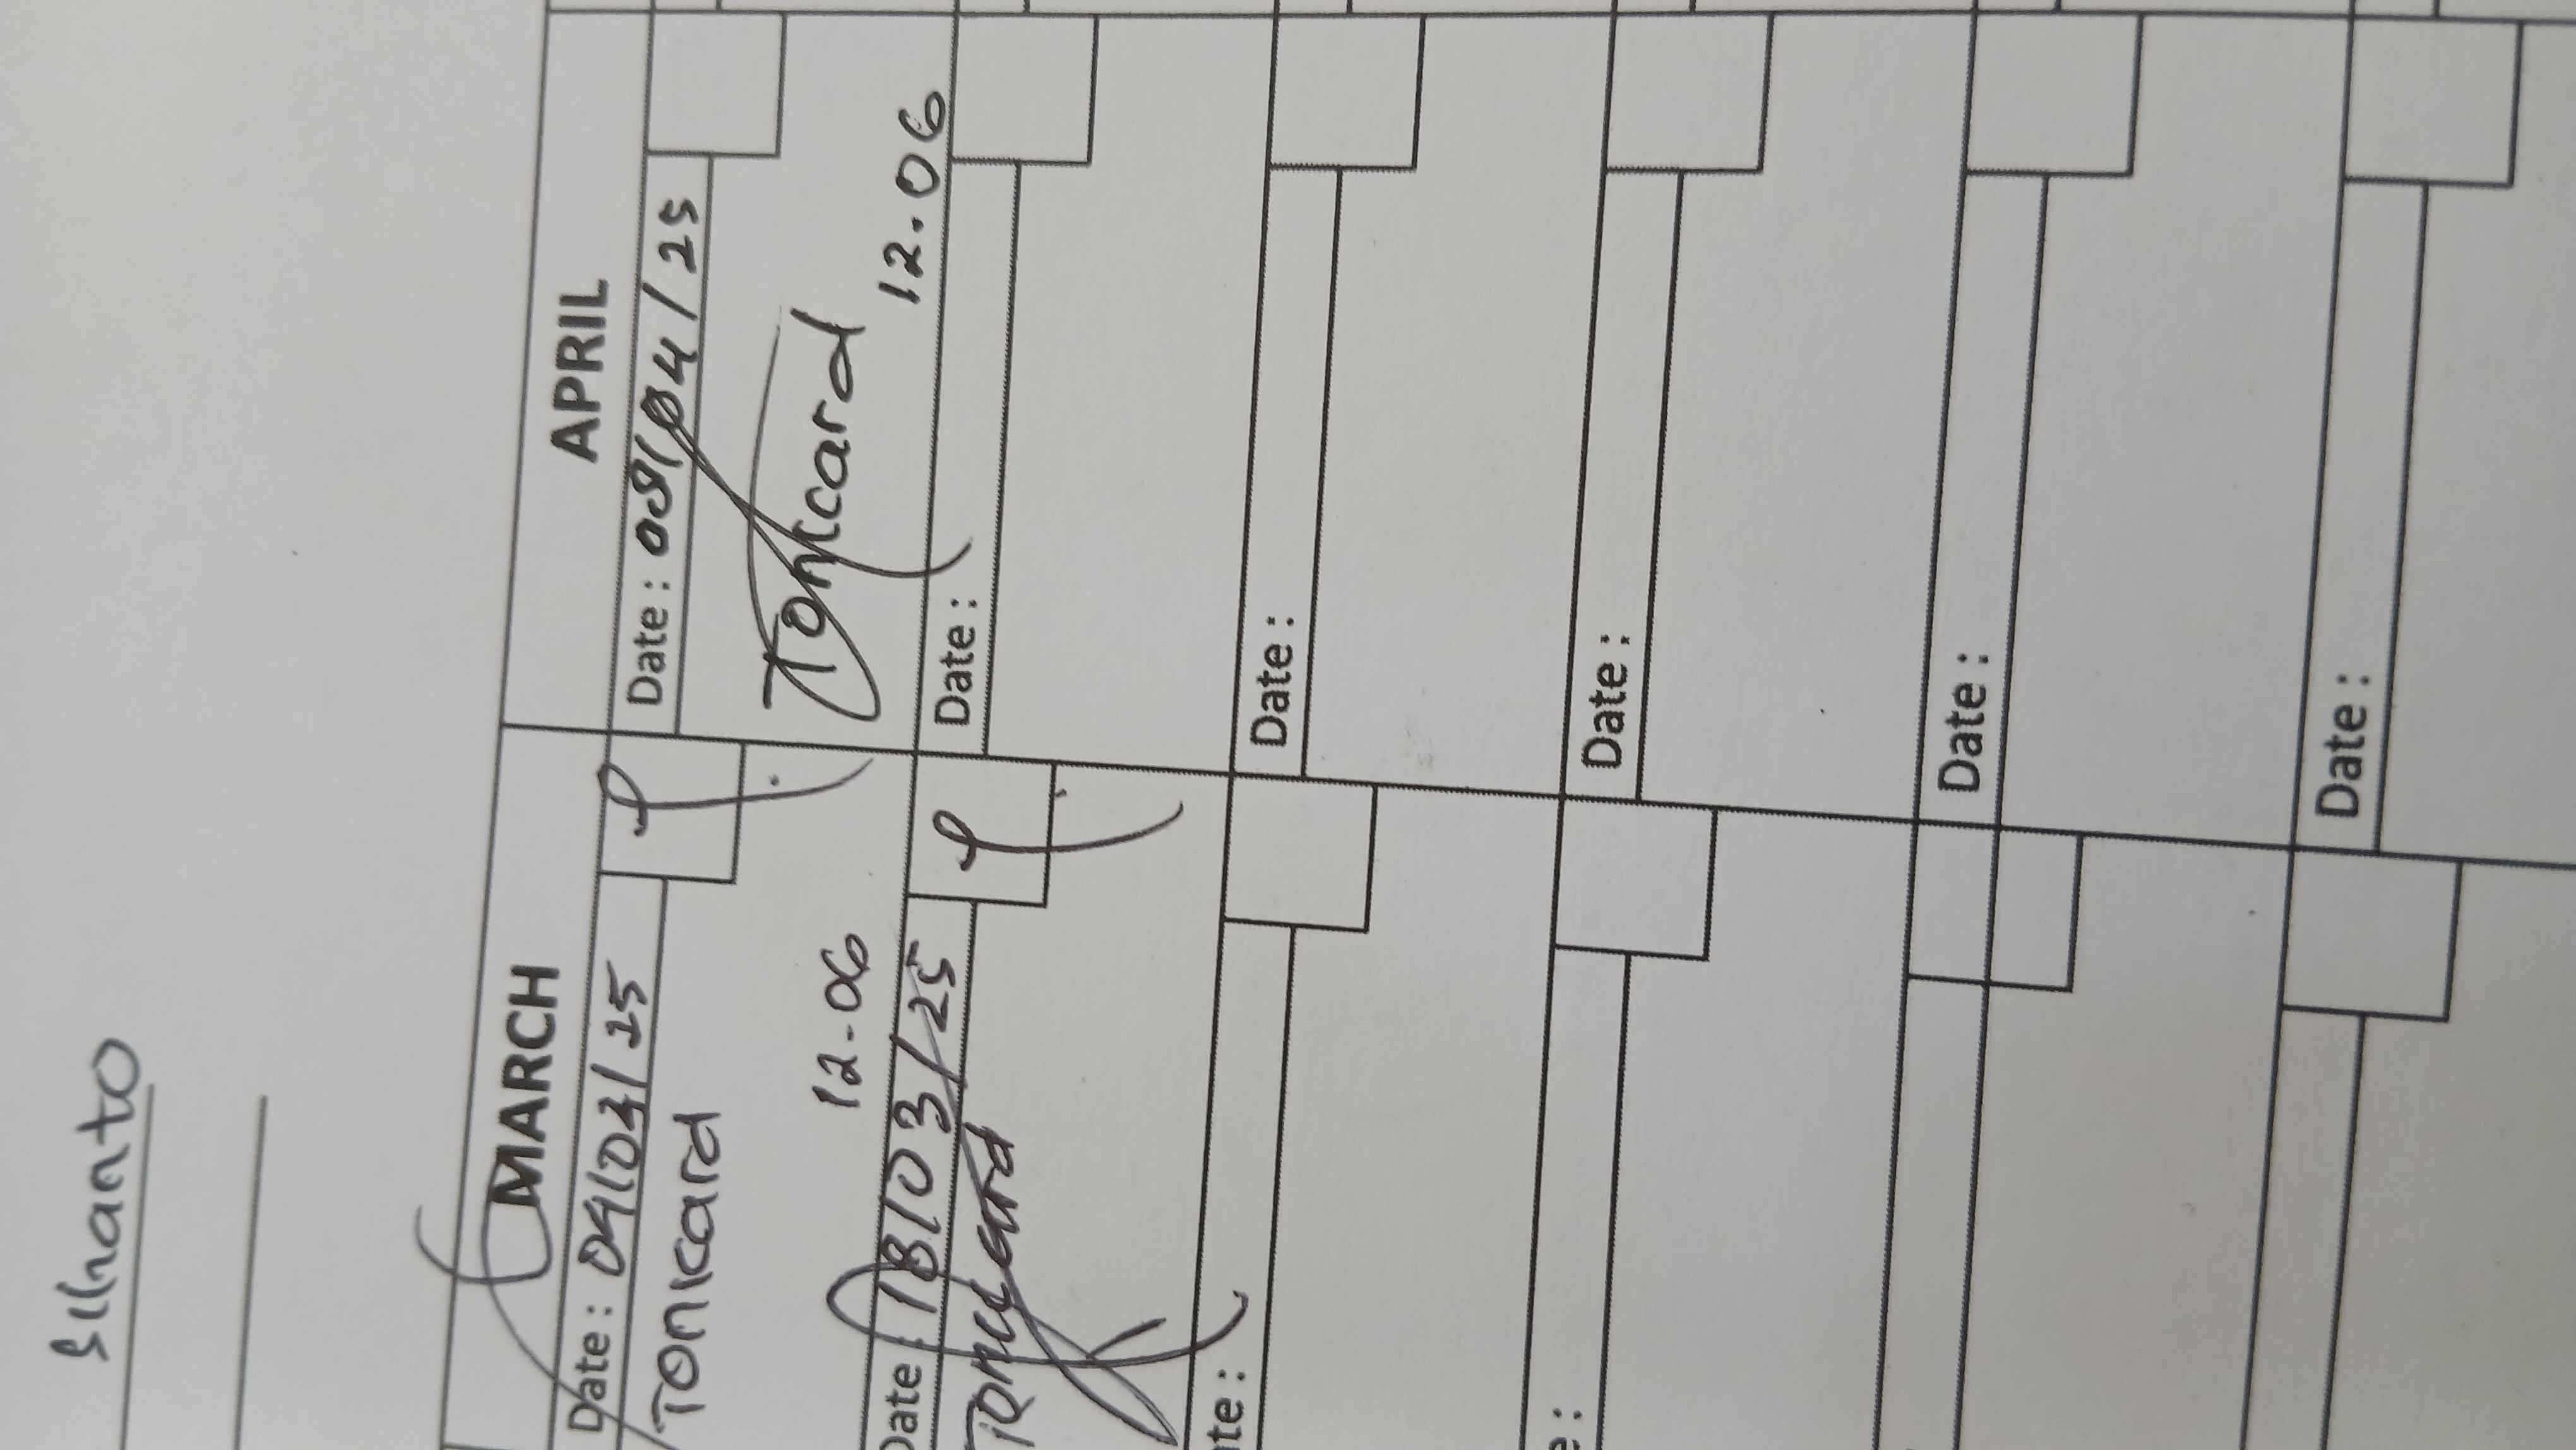 MARCH APRIL
Date : 04/03/25 Date : 08/04/25
Tonicard Tonicard
12.06 12.06
Date : 18/03/25 Date :
Tonicard
Date : Date :
Date :
Date :
Date :